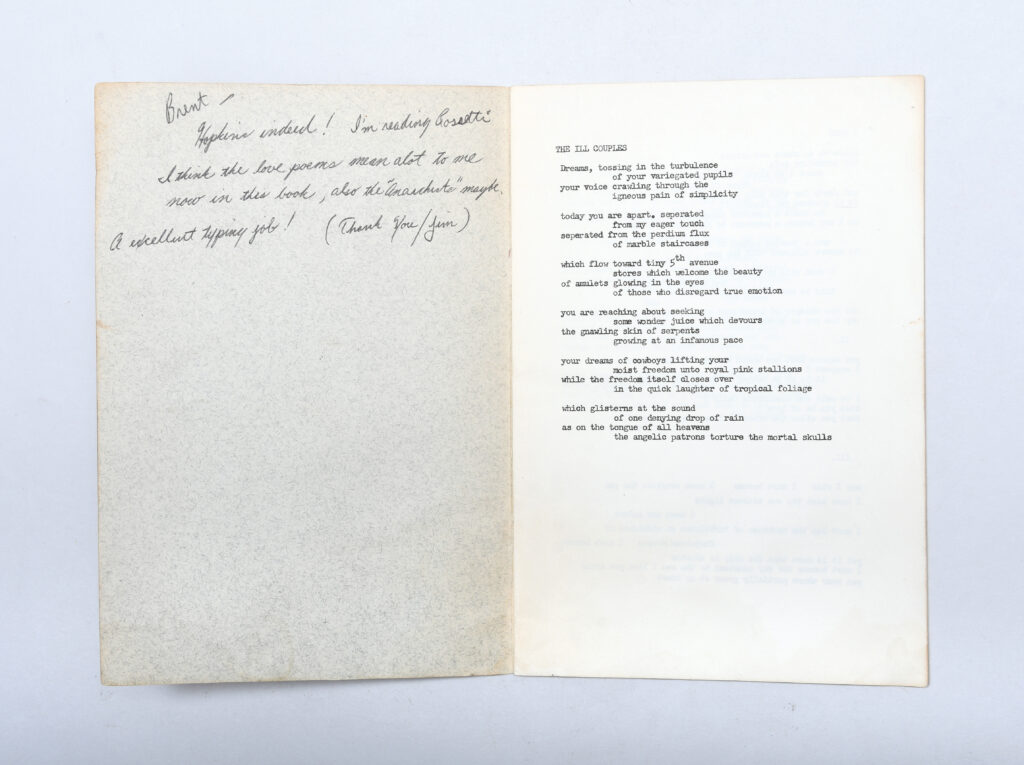 Brent –
Hopkins indeed! I'm reading Rossetti
I think the love poems mean alot to me
now in this book, also the "Anarchists" maybe.
A excellent typing job! (Thank You/Jim)
THE ILL COUPLES
Dreams, tossing in the turbulence
of your variegated pupils
your voice crawling through the
igneous pain of simplicity
today you are apart. seperated
from my eager touch
seperated from the perdium flux
of marble staircases
which flow toward tiny 5th avenue
stores which welcome the beauty
of amulets glowing in the eyes
of those who disregard true emotion
you are reaching about seeking
some wonder juice which devours
the gnawling skin of serpents
growing at an infanous pace
your dreams of cowboys lifting your
moist freedom unto royal pink stallions
while the freedom itself closes over
in the quick laughter of tropical foliage
which glisterns at the sound
of one denying drop of rain
as on the tongue of all heavens
the angelic patrons torture the mortal skulls